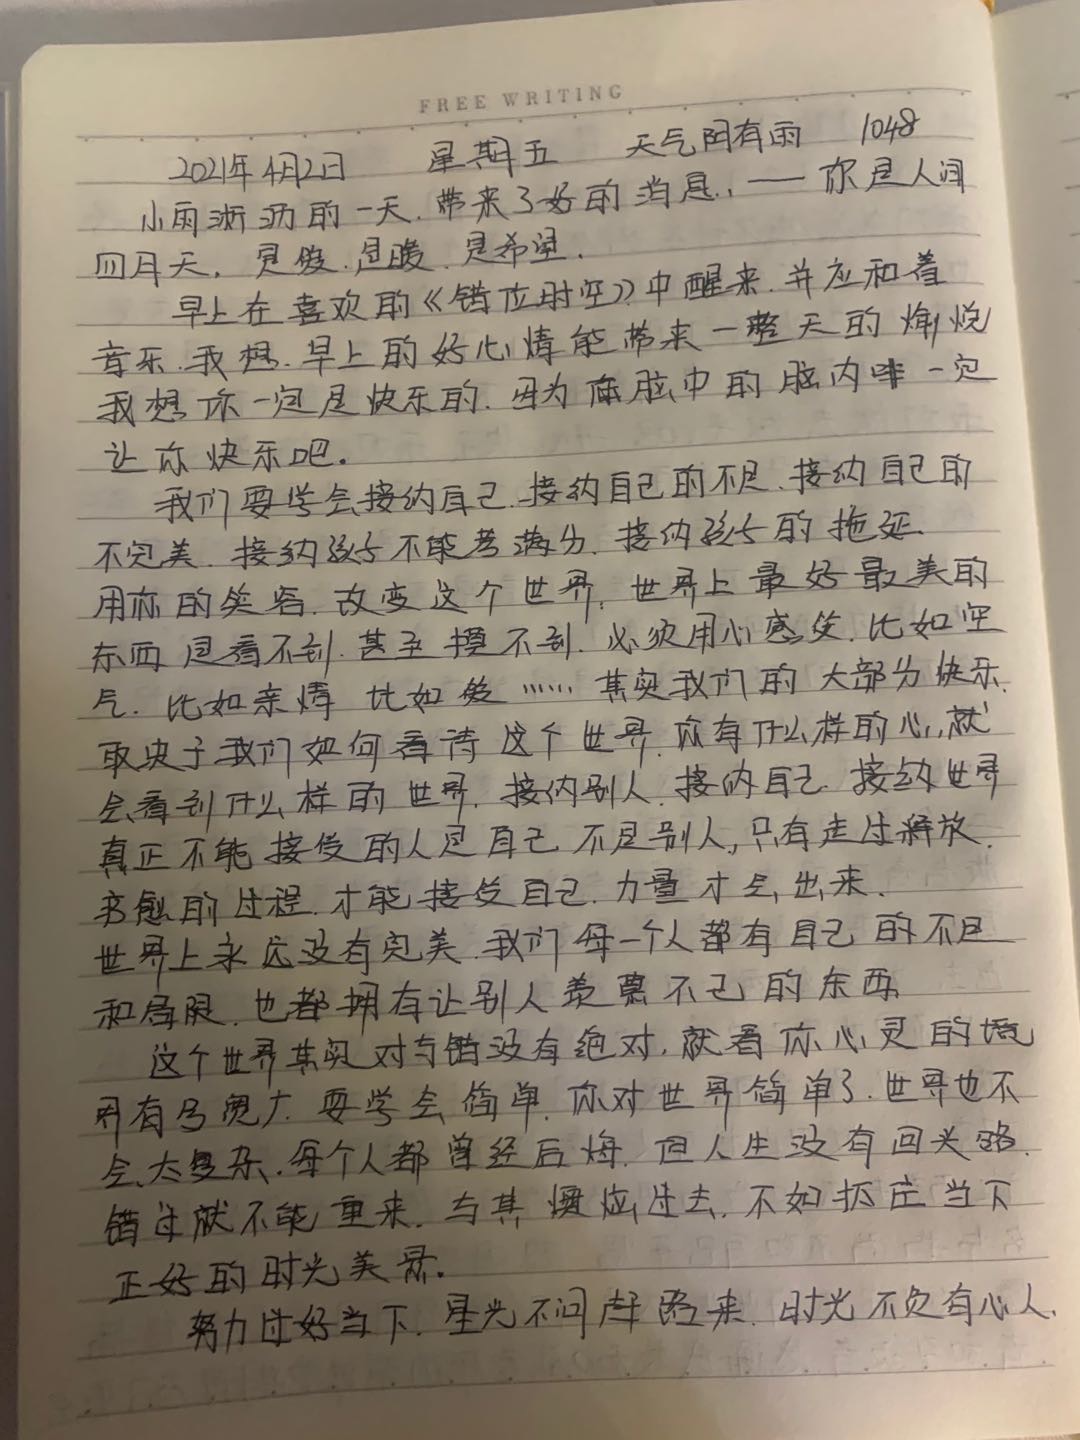 FREE WRITING
2021年4月2日 星期五 天气阴有雨 1048
小雨淅沥的一天,带来了好的消息,——你是人间
四月天,是爱,是暖,是希望.
早上在喜欢的《错位时空》中醒来,并应和着
音乐,我想,早上的好心情能带来一整天的愉悦
我想你一定是快乐的,因为你脑中的脑内啡一定
让你快乐吧。
我们要学会接纳自己,接纳自己的不足,接纳自己的
不完美,接纳孩子不能考满分,接纳孩子的拖延
用你的笑容,改变这个世界,世界上最好最美的
东西是看不到,甚至摸不到,必须用心感受,比如空
气,比如亲情 比如爱……其实我们的大部分快乐,
取决于我们如何看待这个世界,你有什么样的心,就
会看到什么样的世界,接纳别人,接纳自己,接纳世界
真正不能接受的人是自己不是别人,只有走过释放,
疗愈的过程,才能接受自己,力量才会出来,
世界上永远没有完美,我们每一个人都有自己的不足
和局限,也都拥有让别人羡慕不已的东西,
这个世界其实对与错没有绝对,就看你心灵的境
界有多宽广,要学会简单,你对世界简单了,世界也不
会太复杂,每个人都曾经后悔,但人生没有回头路,
错过就不能重来,与其懊恼过去,不如抓住当下
正好的时光美景。
努力过好当下,星光不问赶路来,时光不负有心人,